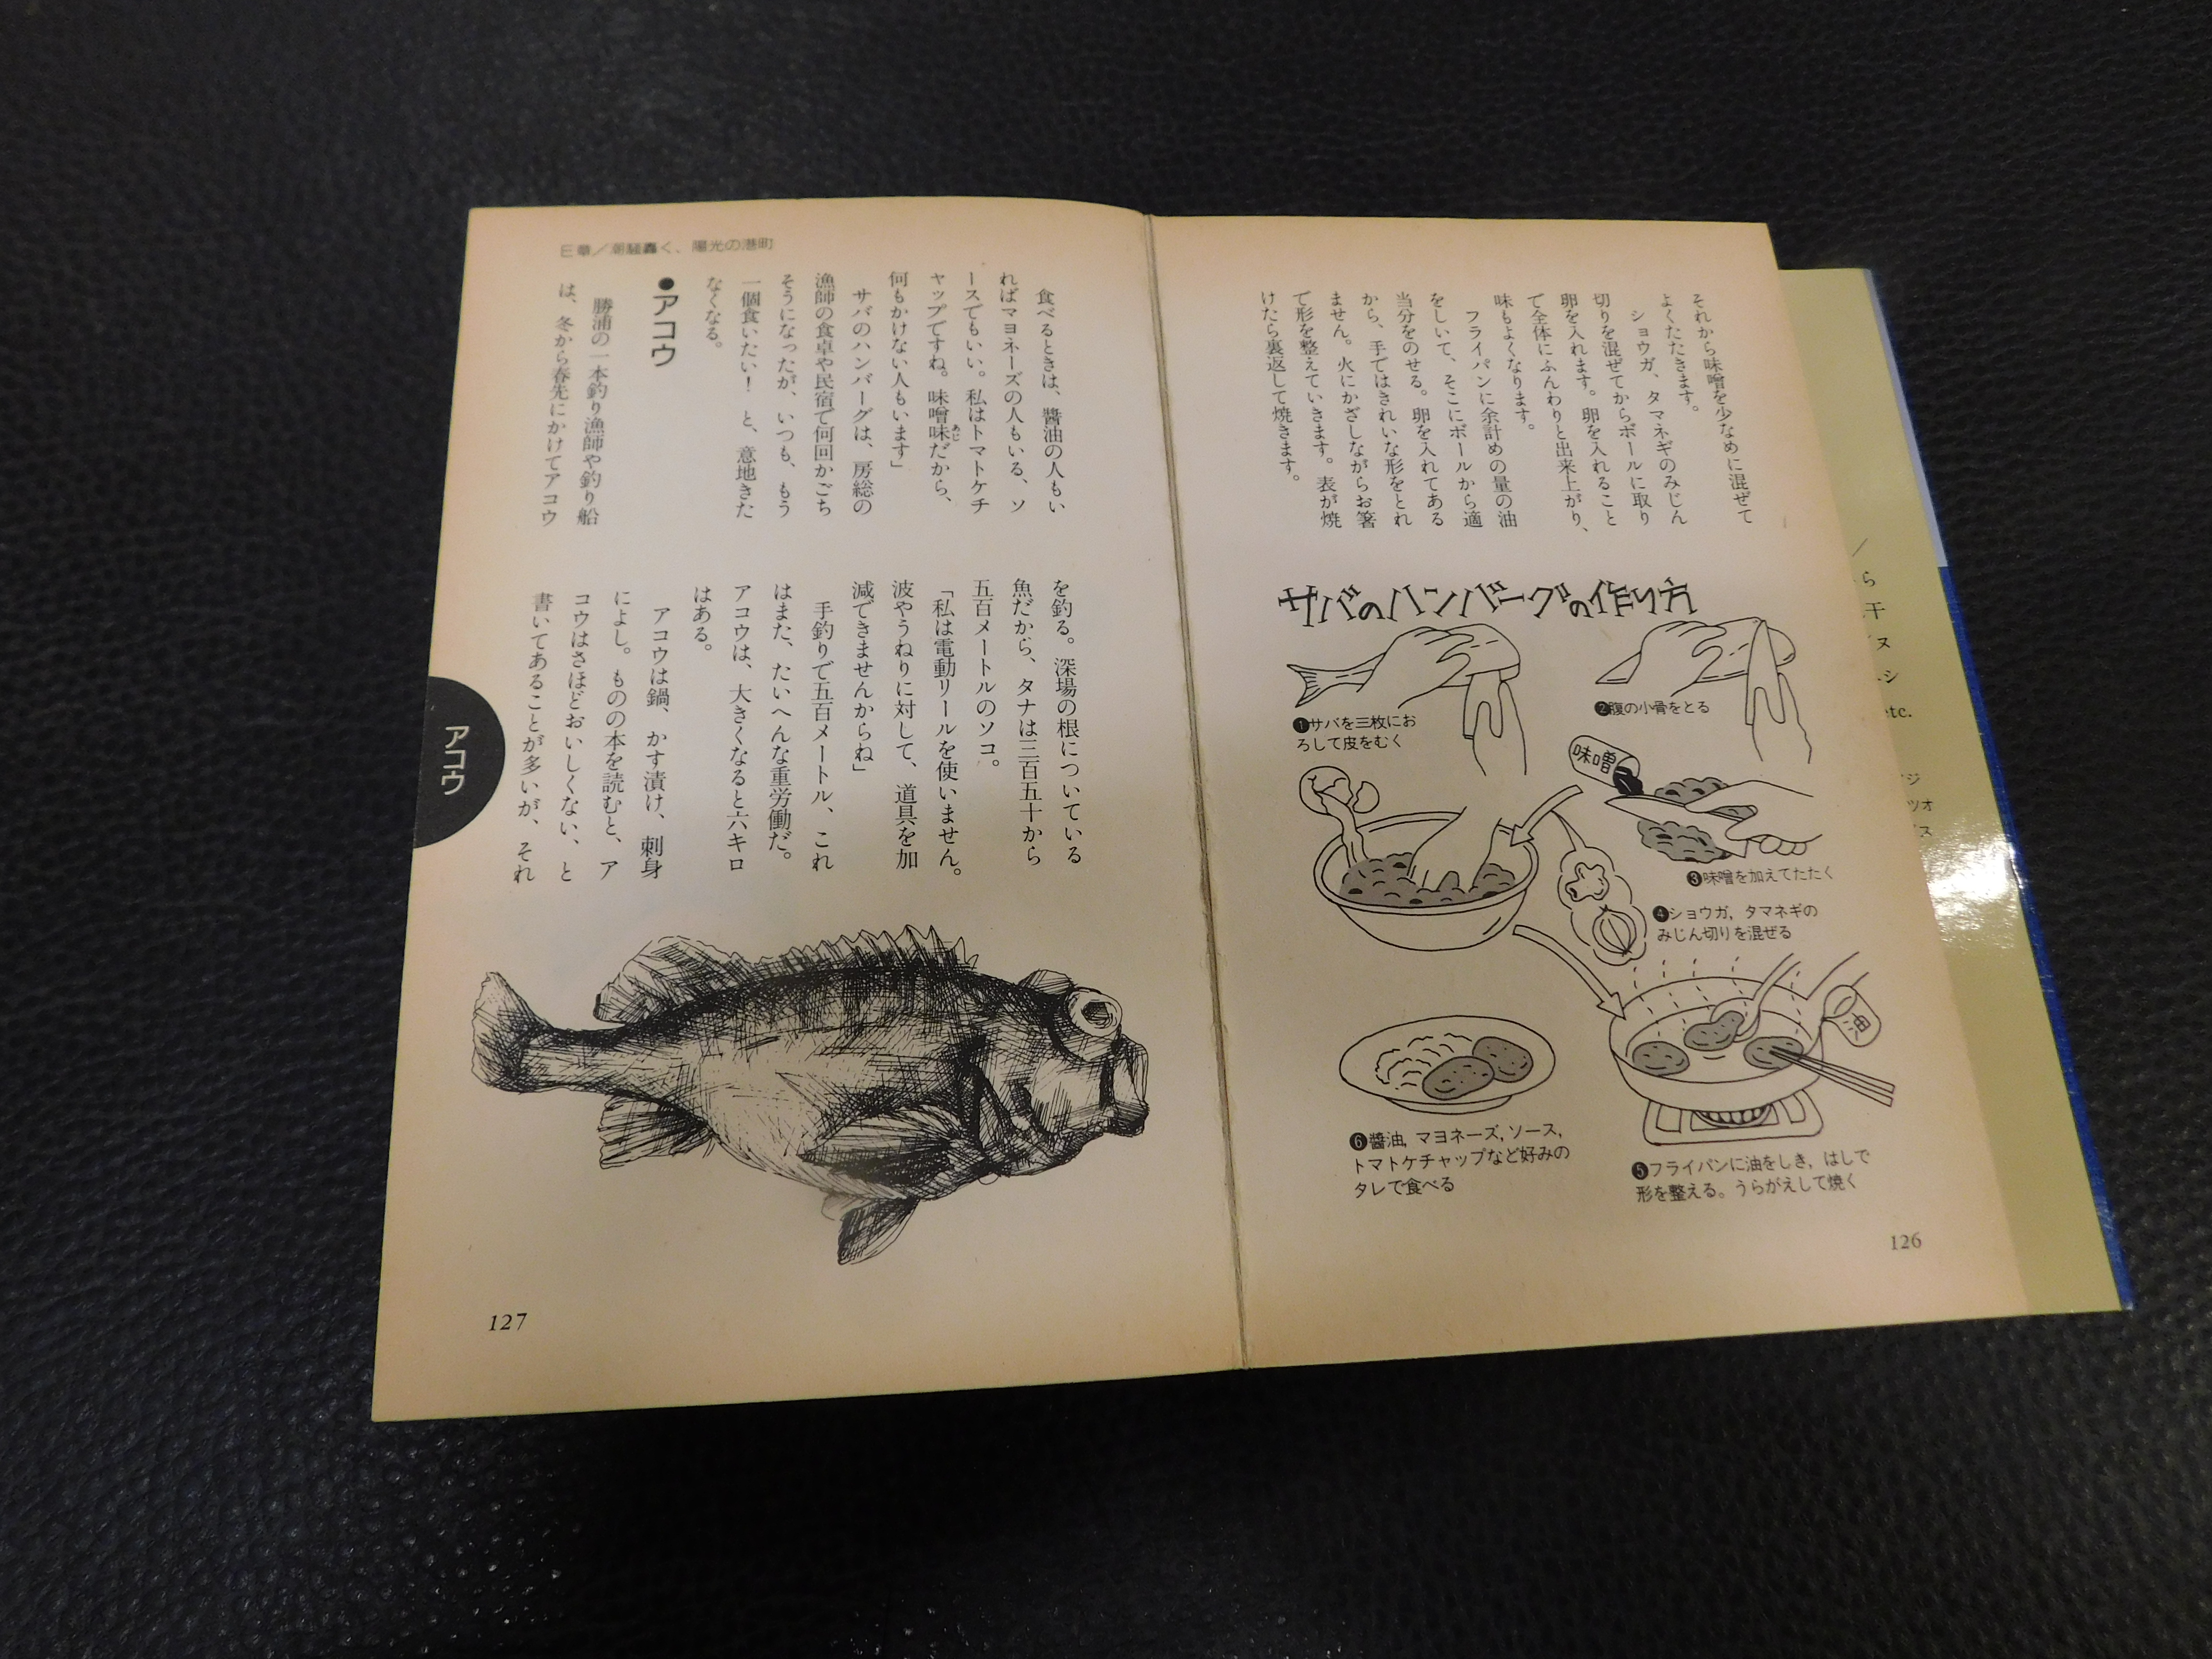 それから味噌を少なめに混ぜて
よくたたきます。
ショウガ、タマネギのみじん
切りを混ぜてからボールに取り
卵を入れます。卵を入れること
で全体にふんわりと出来上がり、
味もよくなります。
フライパンに余計めの量の油
をしいて、そこにボールから適
当分をのせる。卵を入れてある
から、手ではきれいな形をとれ
ません。火にかざしながらお箸
で形を整えていきます。表が焼
けたら裏返して焼きます。
サバのハンバーグの作り方
❶サバを三枚にお
ろして皮をむく
❷腹の小骨をとる
味噌
❸味噌を加えてたたく
❹ショウガ, タマネギの
みじん切りを混ぜる
油
❺フライパンに油をしき, はしで
形を整える。うらがえして焼く
❻醬油, マヨネーズ, ソース,
トマトケチャップなど好みの
タレで食べる
126
章/潮騒轟く、陽光の港町
食べるときは、醬油の人もい
ればマヨネーズの人もいる、ソ
ースでもいい。私はトマトケチ
ャップですね。味噌味だから、
あじ
何もかけない人もいます」
サバのハンバーグは、房総の
漁師の食卓や民宿で何回かごち
そうになったが、いつも、もう
一個食いたい! と、意地きた
なくなる。
●アコウ
勝浦の一本釣り漁師や釣り船
は、冬から春先にかけてアコウ
を釣る。深場の根についている
魚だから、タナは三百五十から
五百メートルのソコ。
「私は電動リールを使いません。
波やうねりに対して、道具を加
減できませんからね」
手釣りで五百メートル、これ
はまた、たいへんな重労働だ。
アコウは、大きくなると六キロ
はある。
アコウは鍋、かす漬け、刺身
によし。ものの本を読むと、ア
コウはさほどおいしくない、と
書いてあることが多いが、それ
アコウ
127
etc.